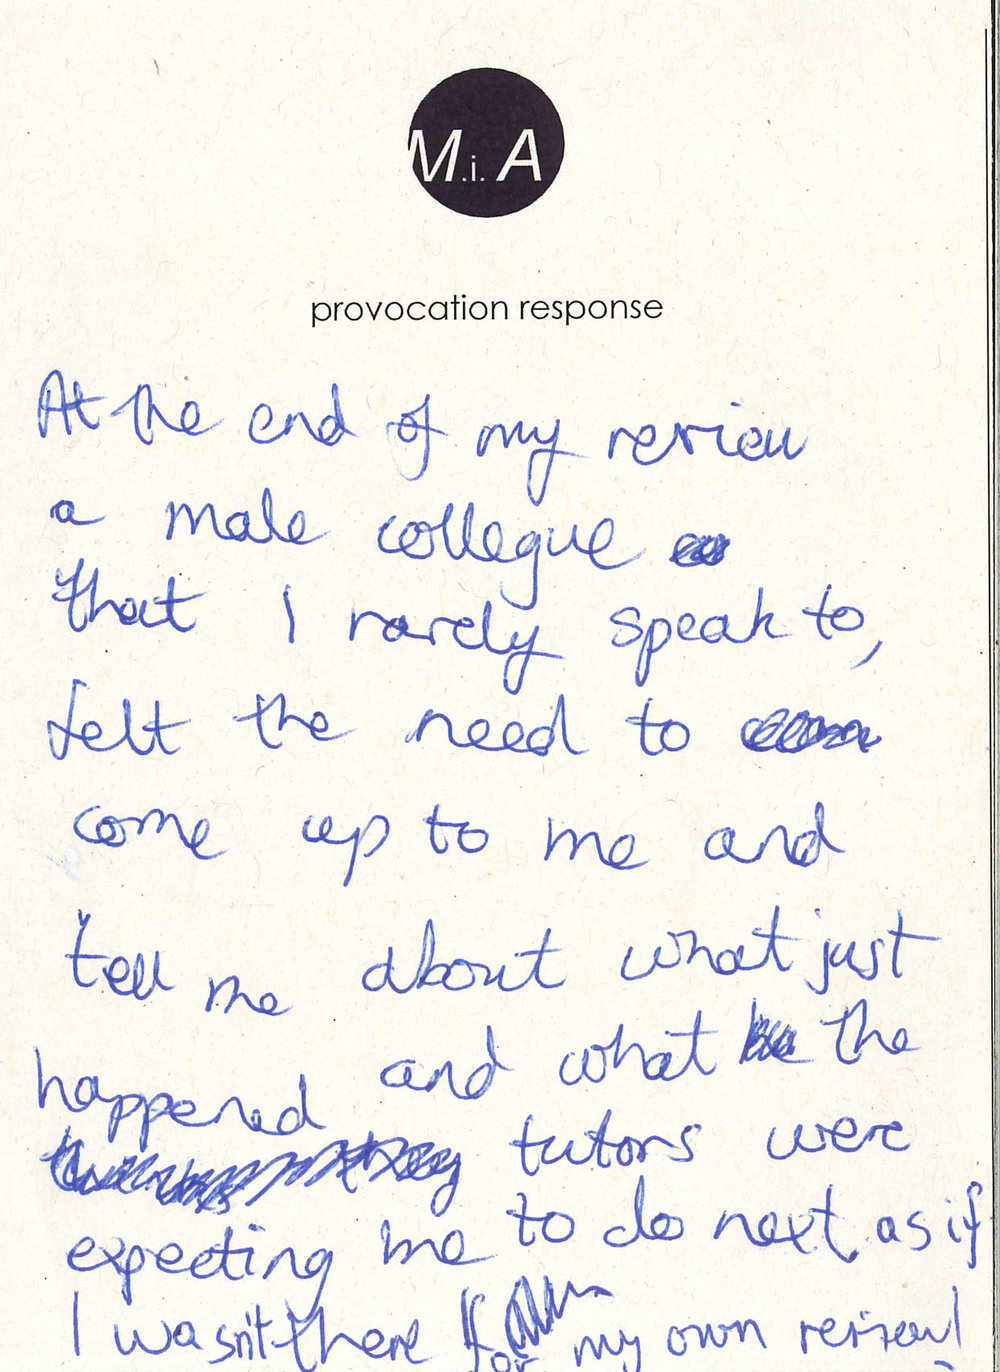 M.i.A
provocation response
At the end of my review
a male collegue
that I rarely speak to,
felt the need to
come up to me and
tell me about what just
happened and what the
tutors were
expecting me to do next as if
I wasn't there for my own review!